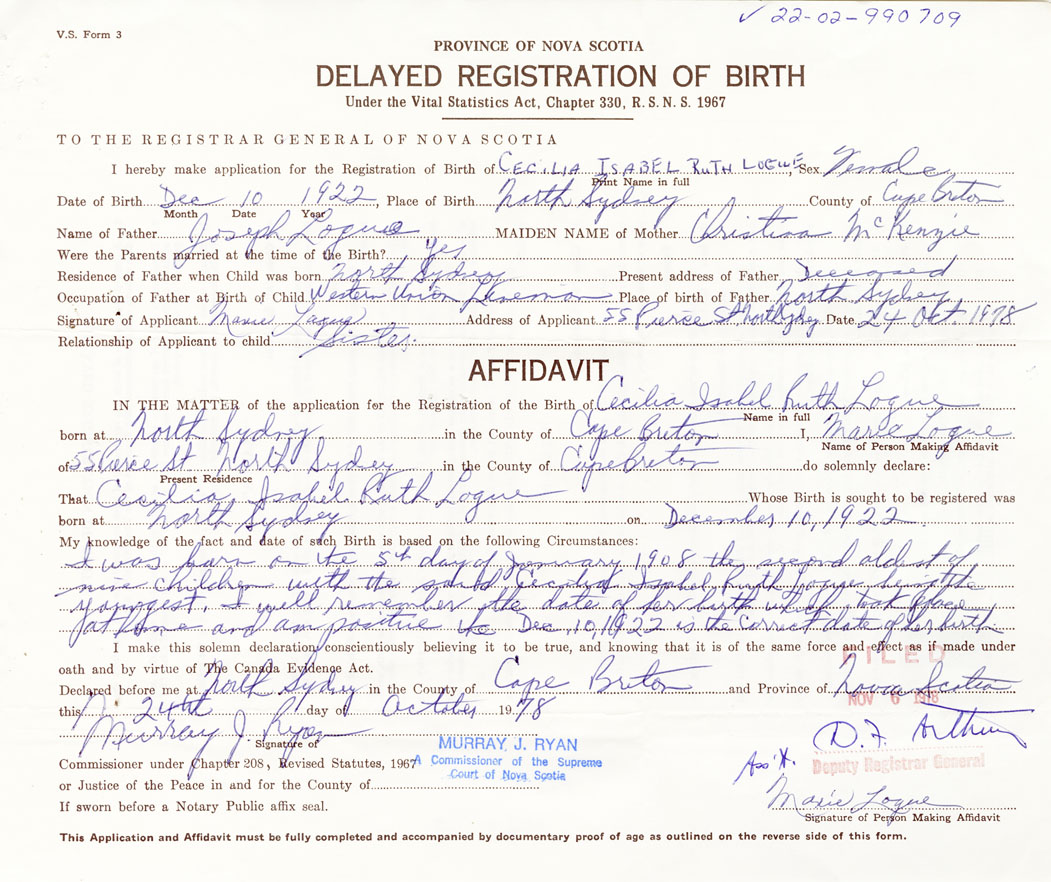 ✓ 22-02-990709
V.S. Form 3
PROVINCE OF NOVA SCOTIA
DELAYED REGISTRATION OF BIRTH
Under the Vital Statistics Act, Chapter 330, R.S.N.S. 1967
TO THE REGISTRAR GENERAL OF NOVA SCOTIA
I hereby make application for the Registration of Birth of CECILIA ISABEL RUTH LOGUE, Sex Female
Print Name in full
Date of Birth Dec 10 1922, Place of Birth North Sydney County of Cape Breton
Month Date Year
Name of Father Joseph Logue MAIDEN NAME of Mother Christina McKenzie
Were the Parents married at the time of the Birth? Yes
Residence of Father when Child was born North Sydney Present address of Father Deceased
Occupation of Father at Birth of Child Western Union Lineman Place of birth of Father North Sydney
Signature of Applicant Marie Logue Address of Applicant 55 Pierce St North Sydney Date 24 Oct. 1978
Relationship of Applicant to child Sister.
AFFIDAVIT
IN THE MATTER of the application for the Registration of the Birth of Cecilia Isabel Ruth Logue
Name in full
born at North Sydney in the County of Cape Breton I, Marie Logue
Name of Person Making Affidavit
of 55 Pierce St North Sydney in the County of Cape Breton do solemnly declare:
Present Residence
That Cecilia Isabel Ruth Logue Whose Birth is sought to be registered was
born at North Sydney on December 10, 1922
My knowledge of the fact and date of such Birth is based on the following Circumstances:
I was born on the 5th day of January 1908 the second oldest of
nine children with the said Cecilia Isabel Ruth Logue being the
youngest. I well remember the date of her birth which took place
at home and am positive the Dec. 10, 1922 is the correct date of her birth.
I make this solemn declaration, conscientiously believing it to be true, and knowing that it is of the same force and effect as if made under
oath and by virtue of The Canada Evidence Act.
FILED
Declared before me at North Sydney in the County of Cape Breton and Province of Nova Scotia
NOV 6 1978
this 24th day of October 1978
Murray J. Ryan
Signature of
D. F. Arthur
Commissioner under Chapter 208, Revised Statutes, 1967
MURRAY J. RYAN
A Commissioner of the Supreme
Court of Nova Scotia
Ass't.
Deputy Registrar General
or Justice of the Peace in and for the County of
Marie Logue
If sworn before a Notary Public affix seal.
Signature of Person Making Affidavit
This Application and Affidavit must be fully completed and accompanied by documentary proof of age as outlined on the reverse side of this form.